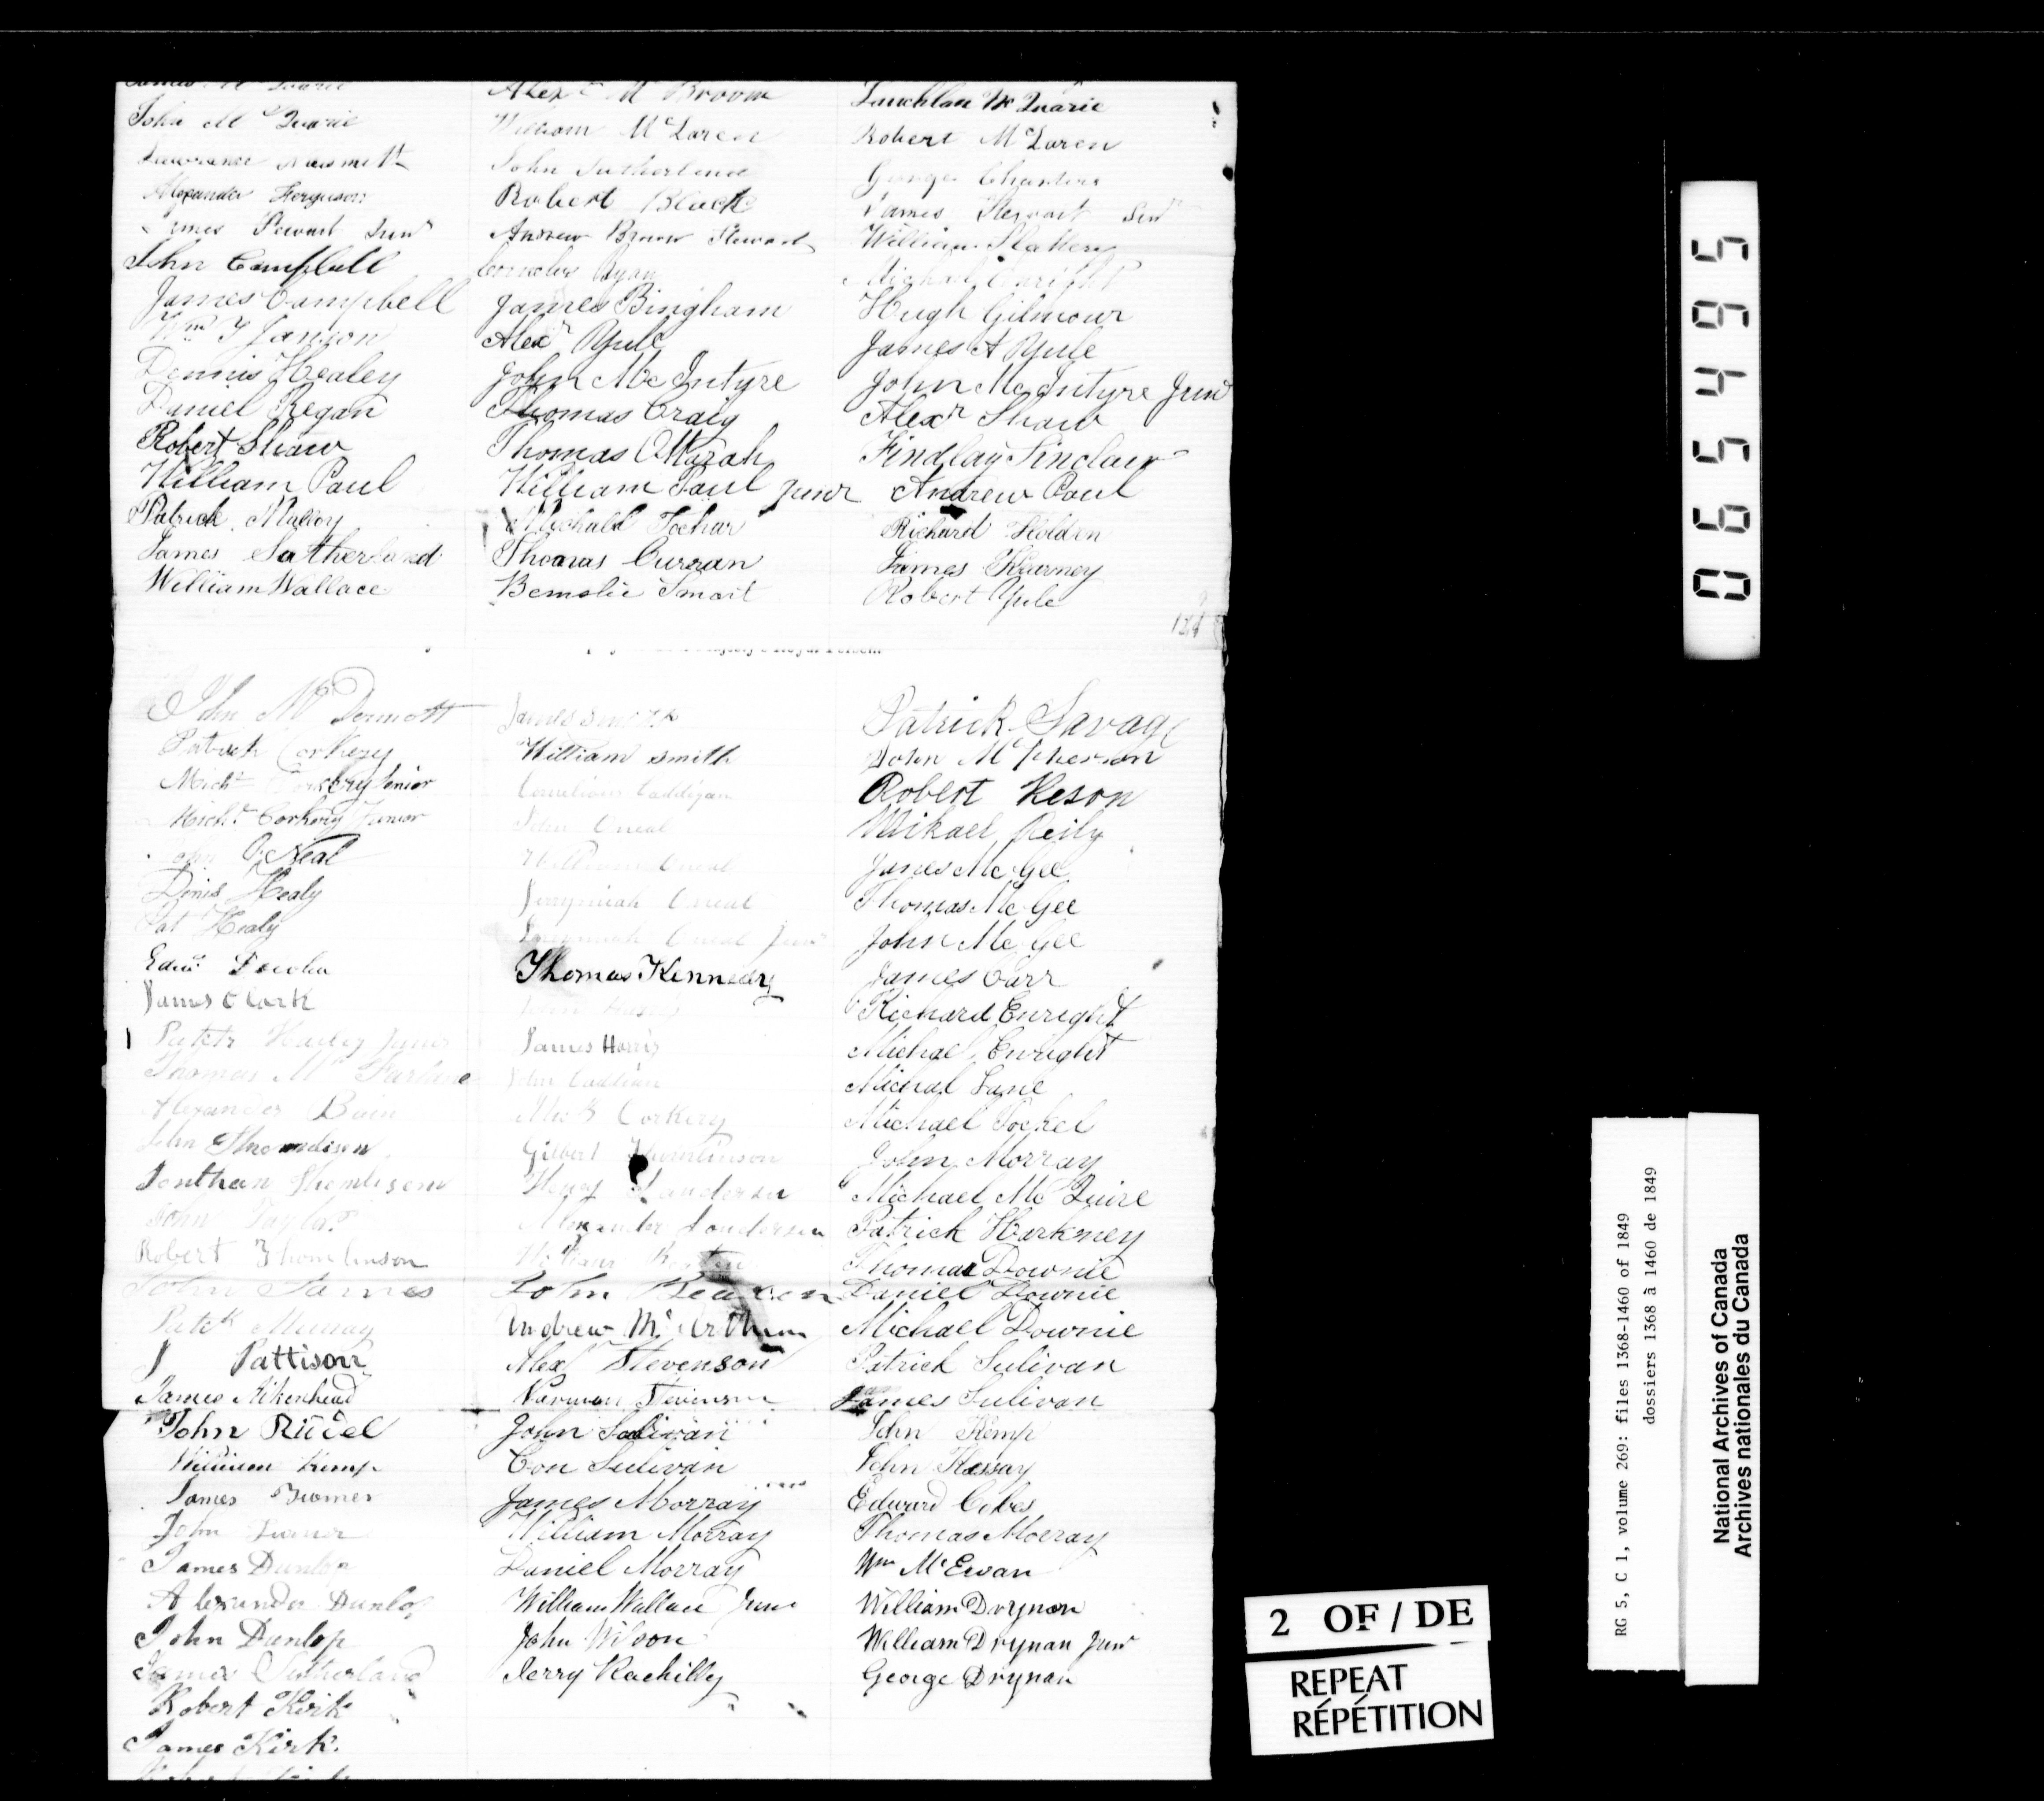 Alexr McBroom
Lauchlan McQuarie
John McQuarie
William McLaren
Robert McLaren
Lawrence Nasmith
John Sutherland
George Charters
Alexander Ferguson
Robert Black
James Stewart Senr
James Stewart Junr
Andrew Brown Stewart
William Slattery
John Campbell
Cornelius Ryan
Michael Enright
James Campbell
James Bingham
Hugh Gilmour
Wm Y Janson
Alexr Yule
James A Yule
Dennis Healey
John McIntyre
John McIntyre Junr
Daniel Regan
Thomas Craig
Alexr Shaw
Robert Shaw
Thomas OMarah
Findlay Sinclair
William Paul
William Paul Junr
Andrew Paul
Patrick Malloy
Michall
Richard Holden
James Sutherland
Thomas Curran
James Kearney
William Wallace
Bemslie Smart
Robert Yule
John McDermott
James Smith
Patrick Savage
Patrick Corkery
William Smith
John McPherson
Michl Corkery Senior
Cornelious Caddigan
Robert Keson
Michl Corkery Junior
John Oneal
Mikael Reily
John O'Neal
William Oneal
James McGee
Dinis Healy
Jerrymiah Oneal
Thomas McGee
Pat Healy
Jerrymiah Oneal Junr
John McGee
Edwd
Thomas Kennedy
James Carr
James Clark
Richard Enright
James Harris
Michael Enright
Thomas McFarlane
John
Michal Lane
Alexander Bain
Mick Corkery
Michael
John Thomlison
Gilbert Thomlinson
John Morray
Jonthan Thomlisom
Henry Sanderson
Michael McQuire
John Taylor
Alexander Sanderson
Patrick Harkney
Robert Thomlinson
William
Thomas Downie
John James
John
Daniel Downie
Patck Murray
Andrew McArthur
Michael Downie
J Pattison
Alexr Stevenson
Patrick Sulivan
James Aikenhead
Norman Stevenson
James Sulivan
John Riddel
John Sulivan
John Kemp
William Kemp
Con Sulivan
John
James Turner
James Morray
Edward
John Turner
William Morray
Thomas Morray
James Dunlop
Daniel Morray
Wm McEwan
Alexander Dunlop
William Wallace Junr
William Drynan
John Dunlop
John Wilson
William Drynan Junr
James Sutherland
Jerry
George Drynan
Robert Kirk
James Kirk
065495
RG 5, C 1, volume 269: files 1368-1460 of 1849
dossiers 1368 à 1460 de 1849
National Archives of Canada
Archives nationales du Canada
2 OF / DE
REPEAT
RÉPÉTITION